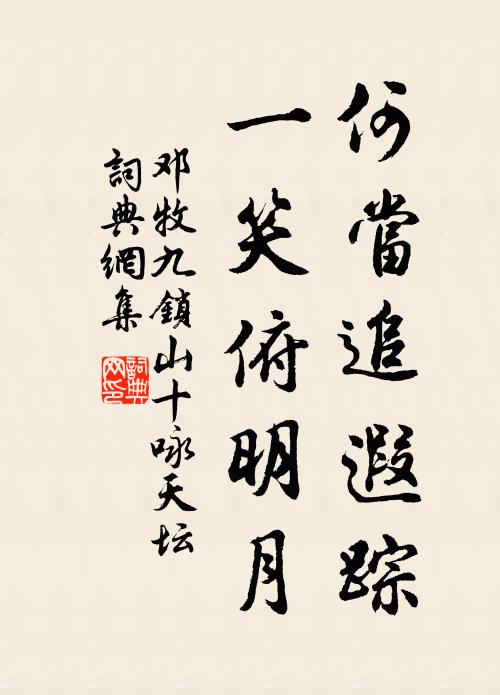 何當追遐踪
一笑俯明月
邓牧九鎖山十咏天坛
詞典網集
詞典网印